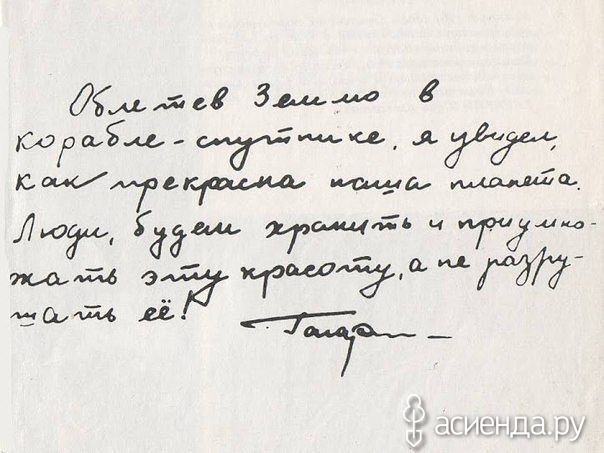 Облетев Землю в
корабле-спутнике, я увидел,
как прекрасна наша планета.
Люди, будем хранить и приумно-
жать эту красоту, а не разру-
шать её!
Гагарин
асиенда.ру